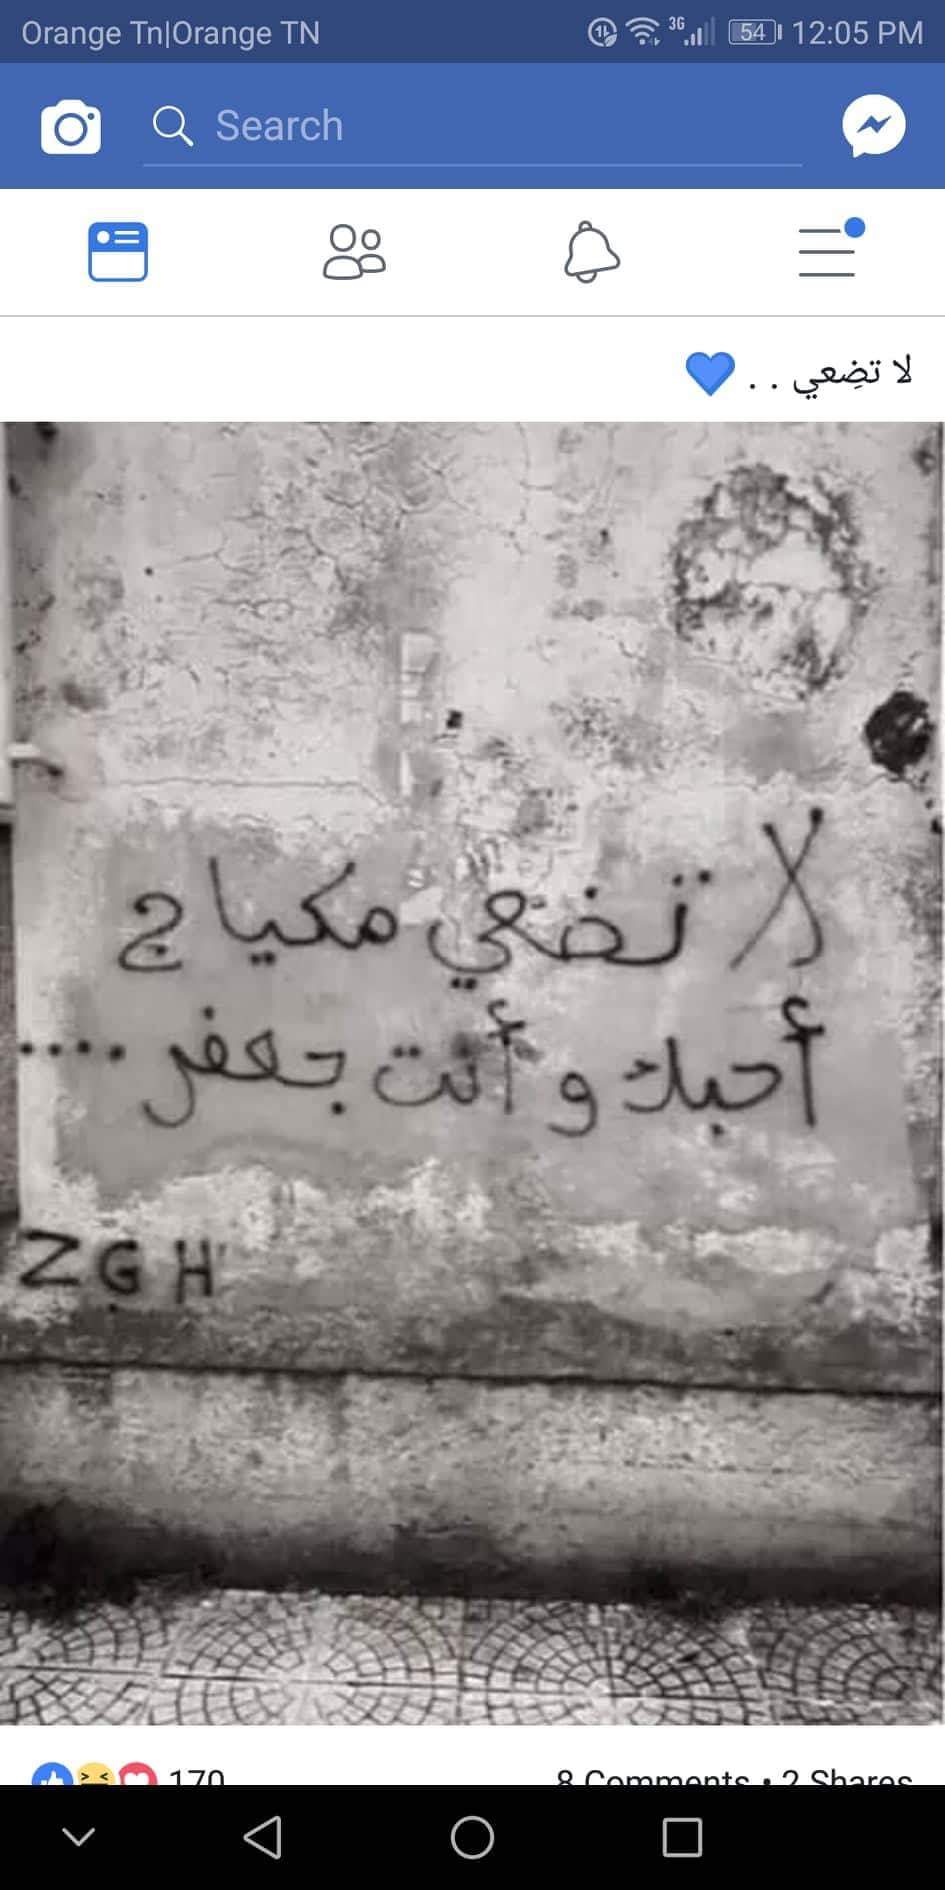 Orange Tn|Orange TN 3G 54 12:05 PM
Search
لا تضِعي . . 💙
لا تضعي مكياج
أحبك و أنت جعفر ....
ZGH
170 8 Comments • 2 Shares